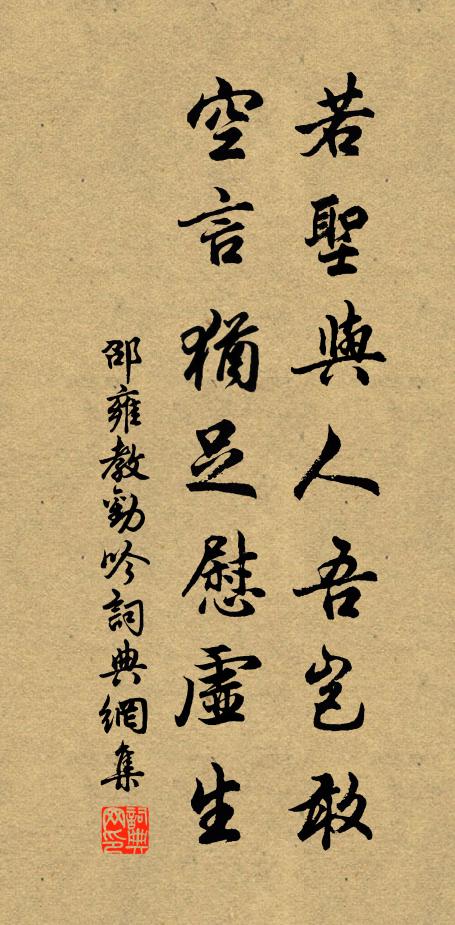 若聖與人吾豈敢
空言猶足慰虛生
邵雍教勸吟詞典網集
詞典網印